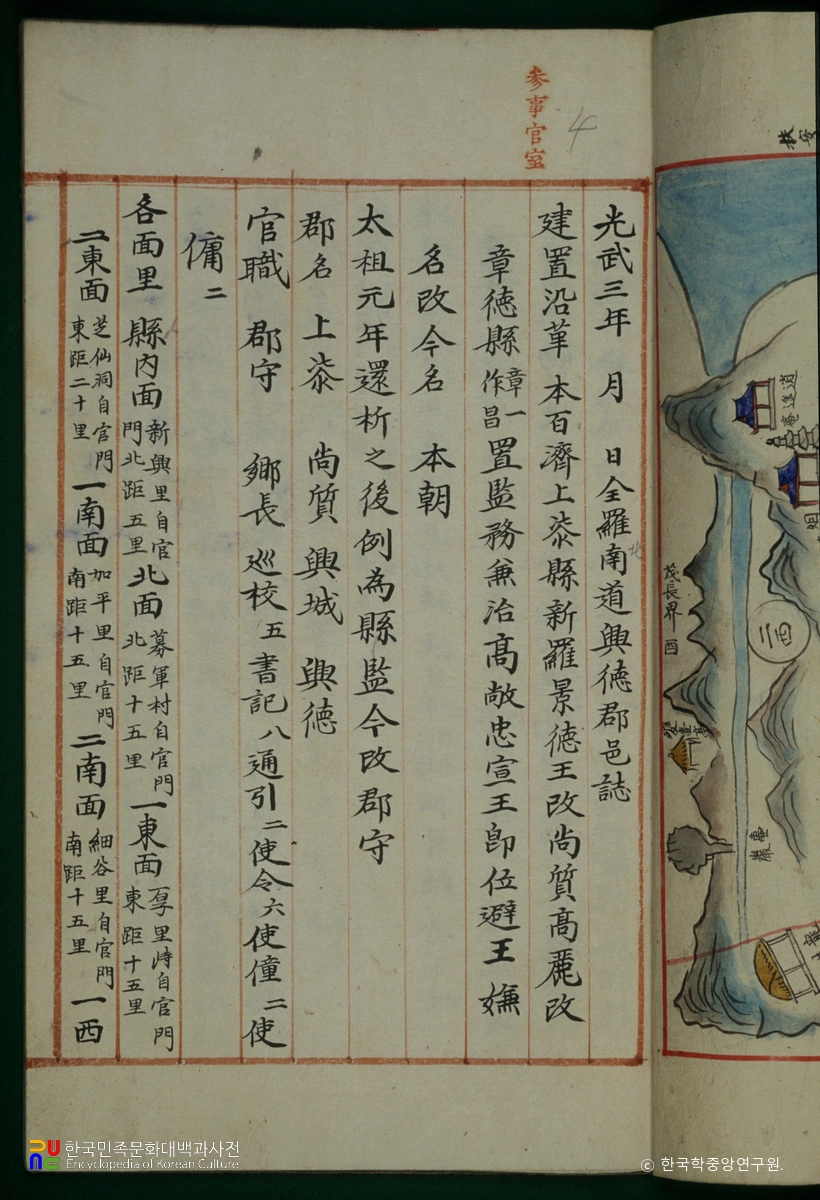 参事官室
4
光武三年 月 日全羅南道興徳郡邑誌
北
建置沿革 本百濟上柒縣新羅景徳王改尚質高麗改
章徳縣 章一作昌 置監務兼治高敞忠宣王即位避王嫌
名改今名 本朝
太祖元年還析之後例為縣監今改郡守
郡名 上柒 尚質 興城 興徳
官職 郡守 鄉長 巡校五書記八通引二使令六使僮二使
傭二
各面里 縣內面 新興里自官門北距五里 北面 募軍村自官門北距十五里 一東面 里峙自官門東距十五里
二東面 芝仙洞自官門東距二十里 一南面 加平里自官門南距十五里 二南面 細谷里自官門南距十五里 一西
扶安
逍遙庵
茂長界 酉
二四
臺巖
한국민족문화대백과사전
Encyclopedia of Korean Culture
© 한국학중앙연구원.